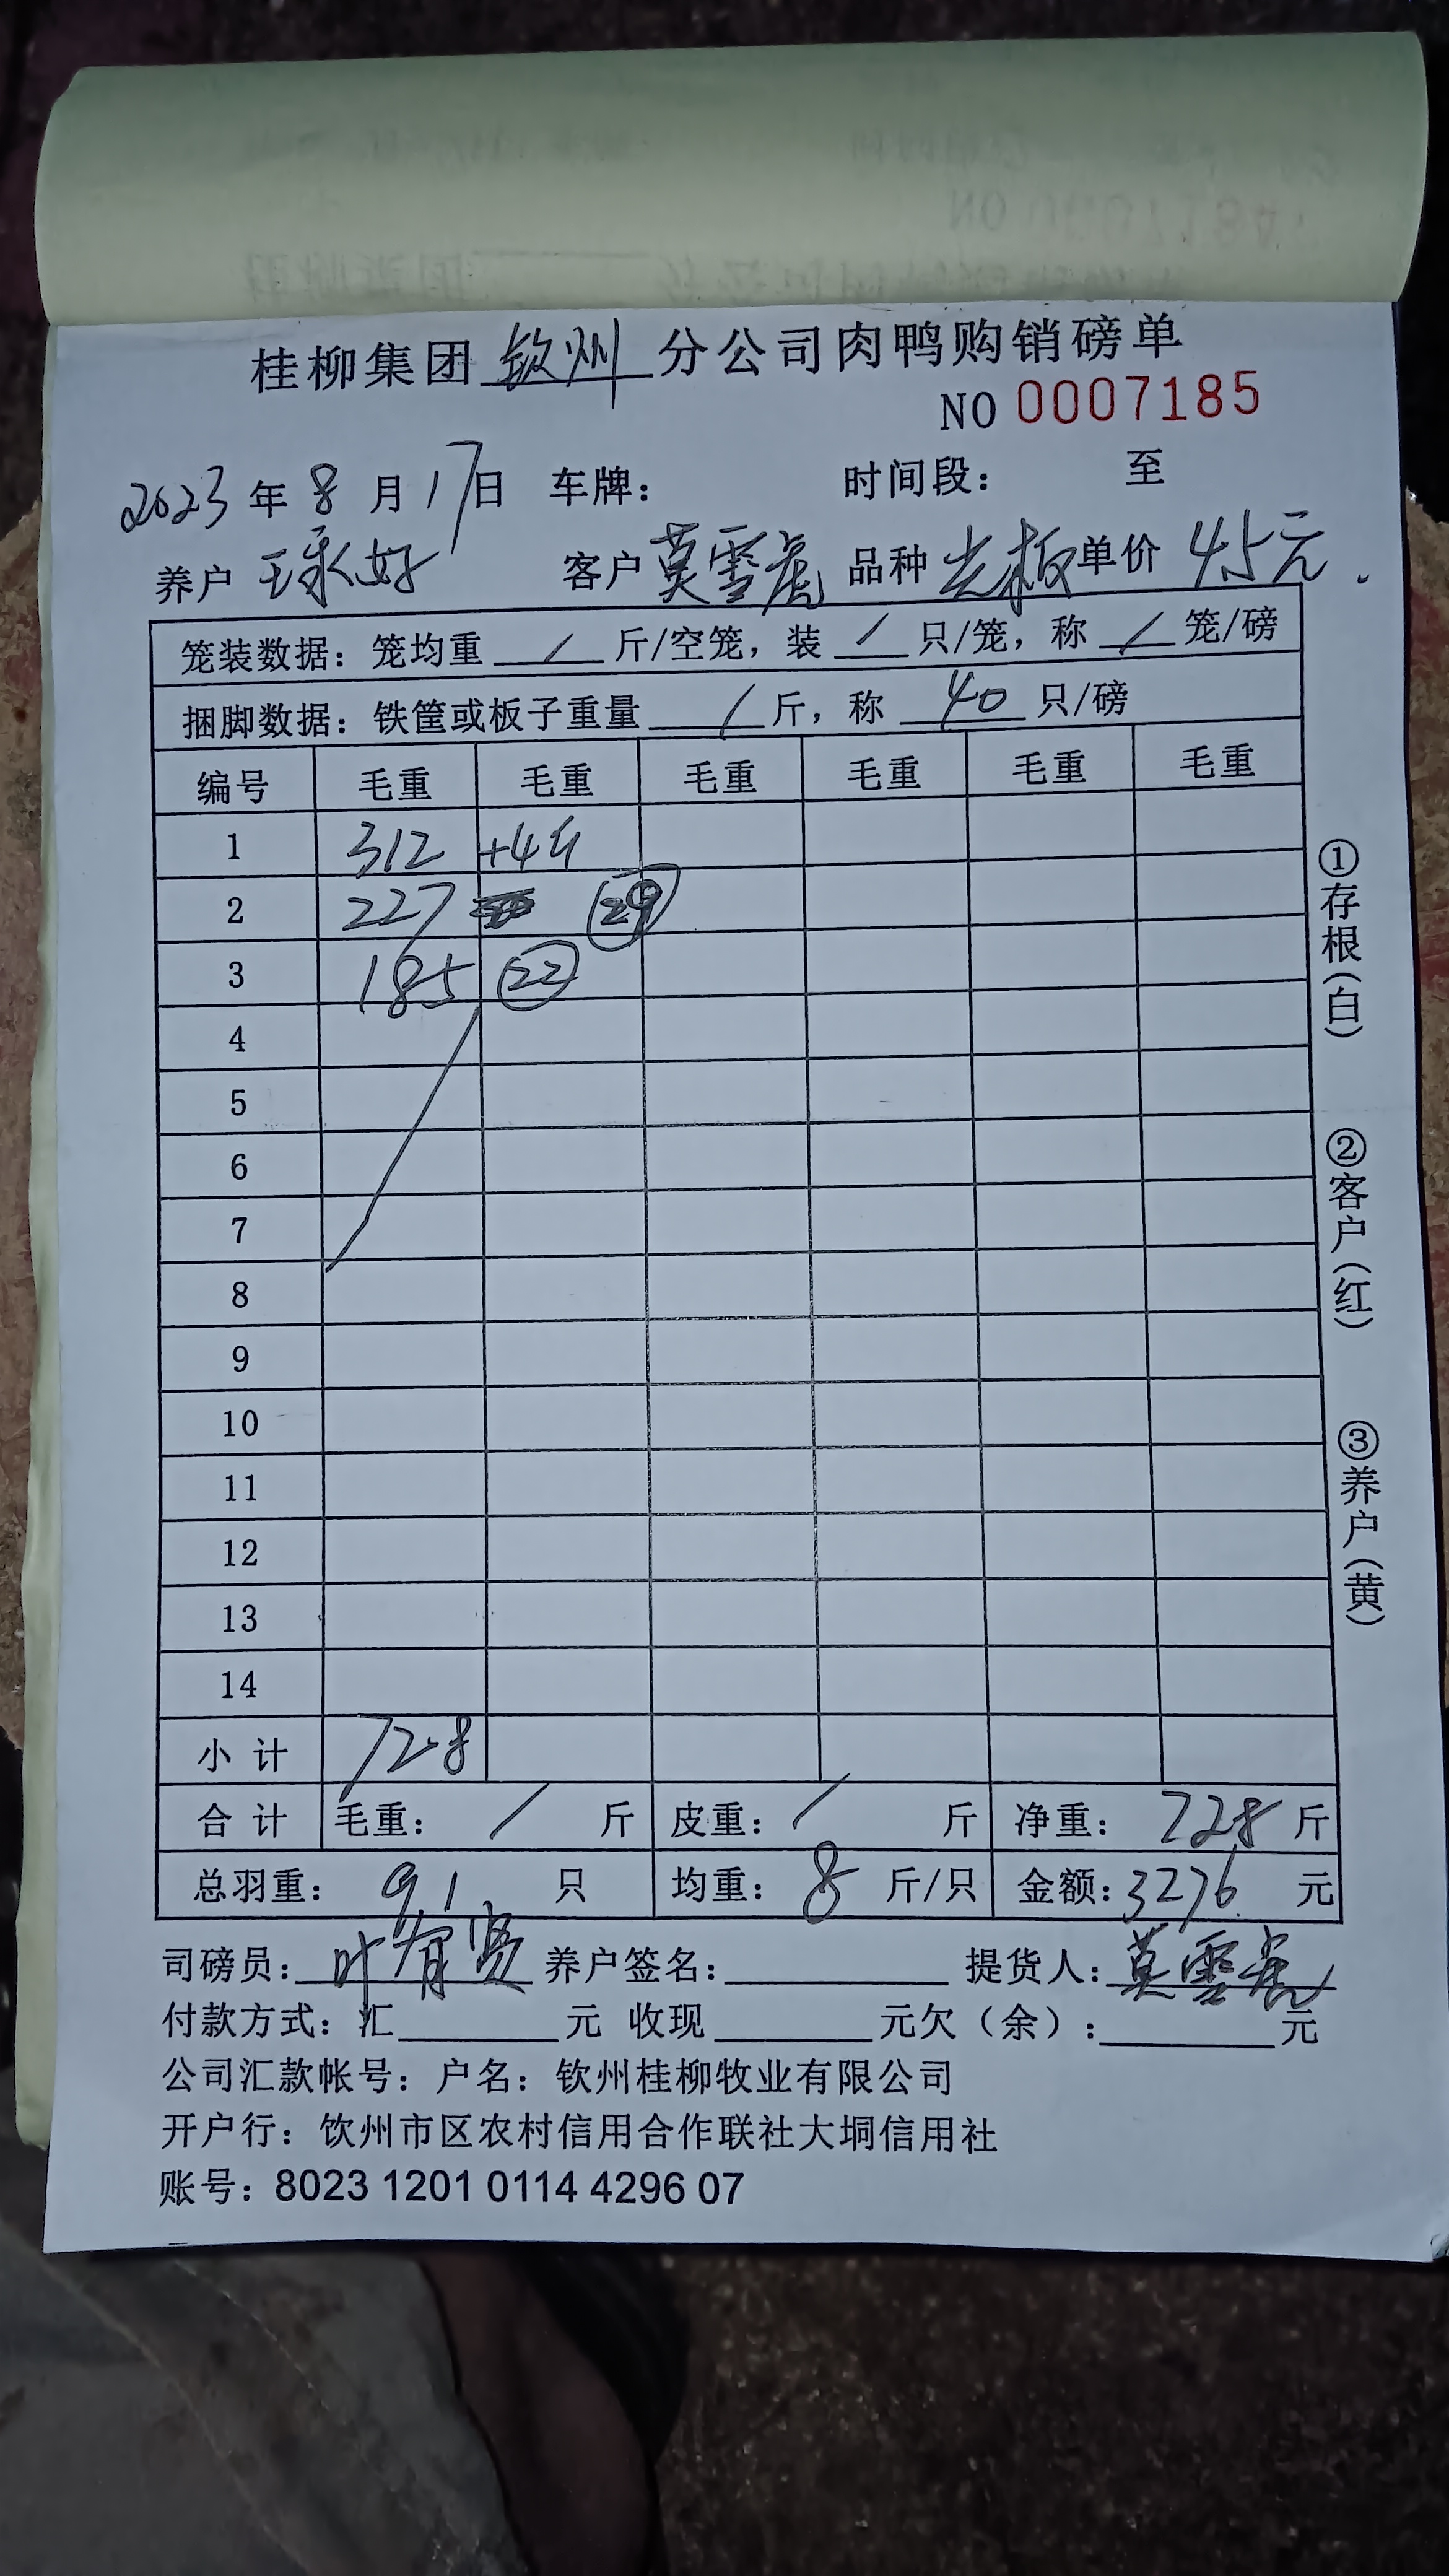 桂柳集团 钦州 分公司肉鸭购销磅单
NO 0007185
2023 年 8 月 17 日 车牌： 时间段： 至
养户 客户 莫雪虎 品种 光板 单价 4.5元
笼装数据：笼均重 / 斤/空笼，装 / 只/笼，称 / 笼/磅
捆脚数据：铁筐或板子重量 / 斤，称 40 只/磅
编号 毛重 毛重 毛重 毛重 毛重 毛重
1 312 +4斤
2 227 29
3 185 22
4
5
6
7
8
9
10
11
12
13
14
小计 728
合计 毛重： / 斤 皮重： / 斤 净重： 728 斤
总羽重： 91 只 均重： 8 斤/只 金额：3276 元
司磅员： 叶有贤 养户签名： 提货人：莫雪虎
付款方式：汇 元 收现 元欠（余）： 元
公司汇款帐号：户名：钦州桂柳牧业有限公司
开户行：钦州市区农村信用合作联社大垌信用社
账号：8023 1201 0114 4296 07
①存根（白）
②客户（红）
③养户（黄）